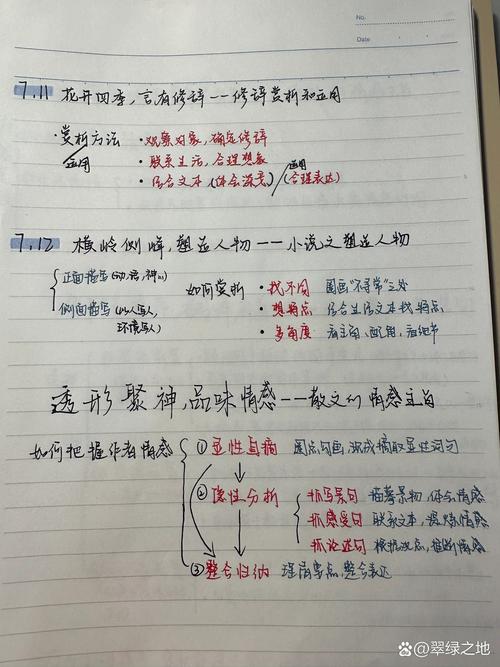 No.
Date
7.11 花开四季,言有修辞——修辞赏析和应用
·赏析方法 ·观察对象,确定修辞
应用 ·联系生活,合理想象
·结合文本(体会深意)/运用(合理表达)
7.12 横岭侧峰,塑造人物——小说之塑造人物
正面描写(动、语、神...) 如何赏析 ·找不同 圈画"不寻常"之处
侧面描写(以人写人, ·想特点 结合生活文本找特点
环境写人) ·多角度 看主角、配角、看细节
透形聚神,品味情感——散文的情感主旨
如何把握作者情感 ①显性直摘 圈点勾画,浓缩摘取显性词句
②隐性分析 抓写景句 描摹景物,体会情感
抓感受句 联系文本,提炼情感
抓论述句 根据观点,推断情感
③整合归纳 理清要点,整合表达
@翠绿之地